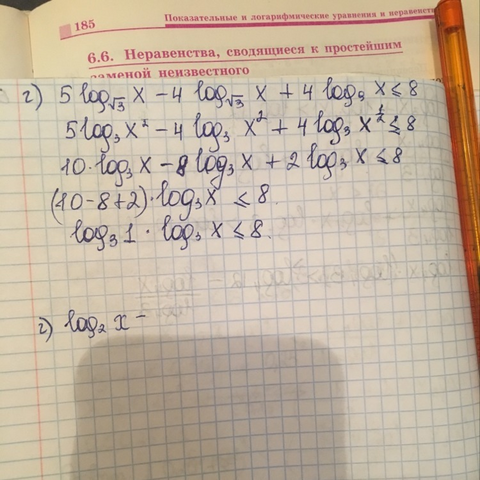 185 Показательные и логарифмические уравнения и неравенст
6.6. Неравенства, сводящиеся к простейшим
заменой неизвестного
г) 5 log_√3 x − 4 log_√3 x + 4 log_9 x ≤ 8
5 log_3 x² − 4 log_3 x² + 4 log_3 x^½ ≤ 8
10 · log_3 x − 8 log_3 x + 2 log_3 x ≤ 8
(10 − 8 + 2) · log_3 x ≤ 8
log_3 1 · log_3 x ≤ 8.
г) log_2 x −